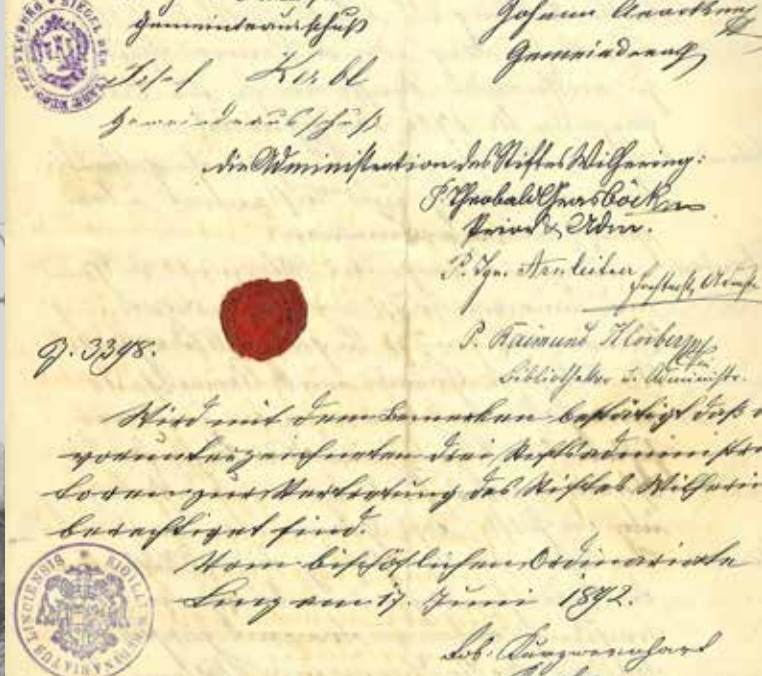 Gemeindeausschuß
Johann
Gemeinderath
Josef Kerbl
Gemeindeausschuß
die Administration des Stiftes Wilhering:
P. Theobald Grasböck
Prior & Adm.
P. Ign. Arnleitner
P. Raimund
Bibliothekar u. Administr.
Z. 3398.
Wird mit dem Bemerken bestätigt daß
vorunterzeichneten drei Stiftsadministra
toren zur Vertretung des Stiftes Wilherin
berechtiget sind.
Vom bischöflichen Ordinariate
Linz am 17. Juni 1892.
SIEGEL DER
LINCIENSIS
ORDINARIATUS